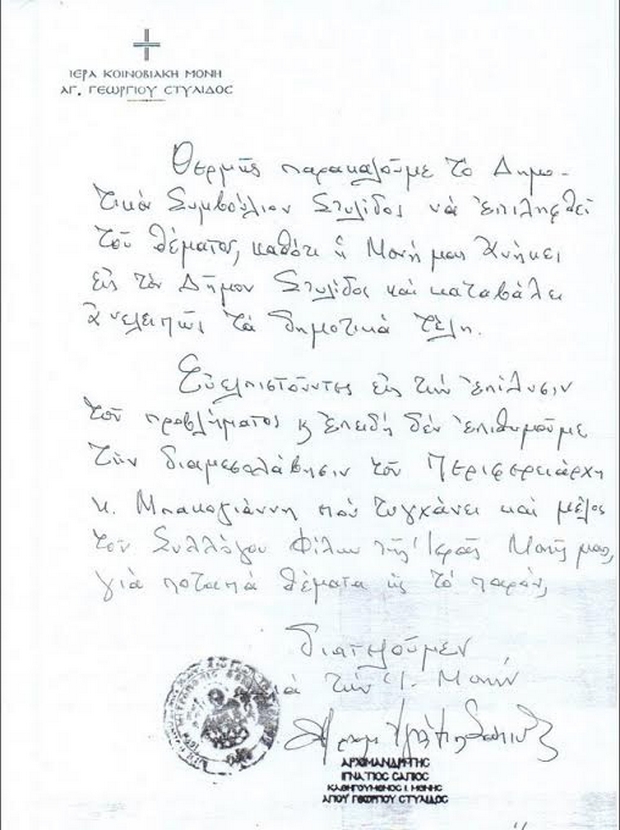 ΙΕΡΑ ΚΟΙΝΟΒΙΑΚΗ ΜΟΝΗ
ΑΓ. ΓΕΩΡΓΙΟΥ ΣΤΥΛΙΔΟΣ
Θερμῶς παρακαλοῦμε τὸ Δημο-
τικὸ Συμβούλιον Στυλίδος νὰ ἐπιληφθεῖ
τοῦ θέματος, καθότι ἡ Μονή μας ἀνήκει
εἰς τὸν Δῆμον Στυλίδος καὶ καταβάλει
ἀνελλιπῶς τὰ δημοτικὰ τέλη.
Εὐελπιστοῦντες εἰς τὴν ἐπίλυσιν
τοῦ προβλήματος κ ἐπειδὴ δὲν ἐπιθυμοῦμε
τὴν διαμεσολάβησιν τοῦ Περιφερειάρχη
κ. Μπακογιάννη ποὺ τυγχάνει καὶ μέλος
τοῦ Συλλόγου Φίλων τῆς Ἱερᾶς Μονῆς μας,
γιὰ ποταπὰ θέματα ὡς τὸ παρόν,
διατελοῦμεν
γιὰ τὴν Ἱ. Μονήν
ΑΡΧΙΜΑΝΔΡΙΤΗΣ
ΙΓΝΑΤΙΟΣ ΣΑΠΙΟΣ
ΚΑΘΗΓΟΥΜΕΝΟΣ Ι. ΜΟΝΗΣ
ΑΓΙΟΥ ΓΕΩΡΓΙΟΥ ΣΤΥΛΙΔΟΣ